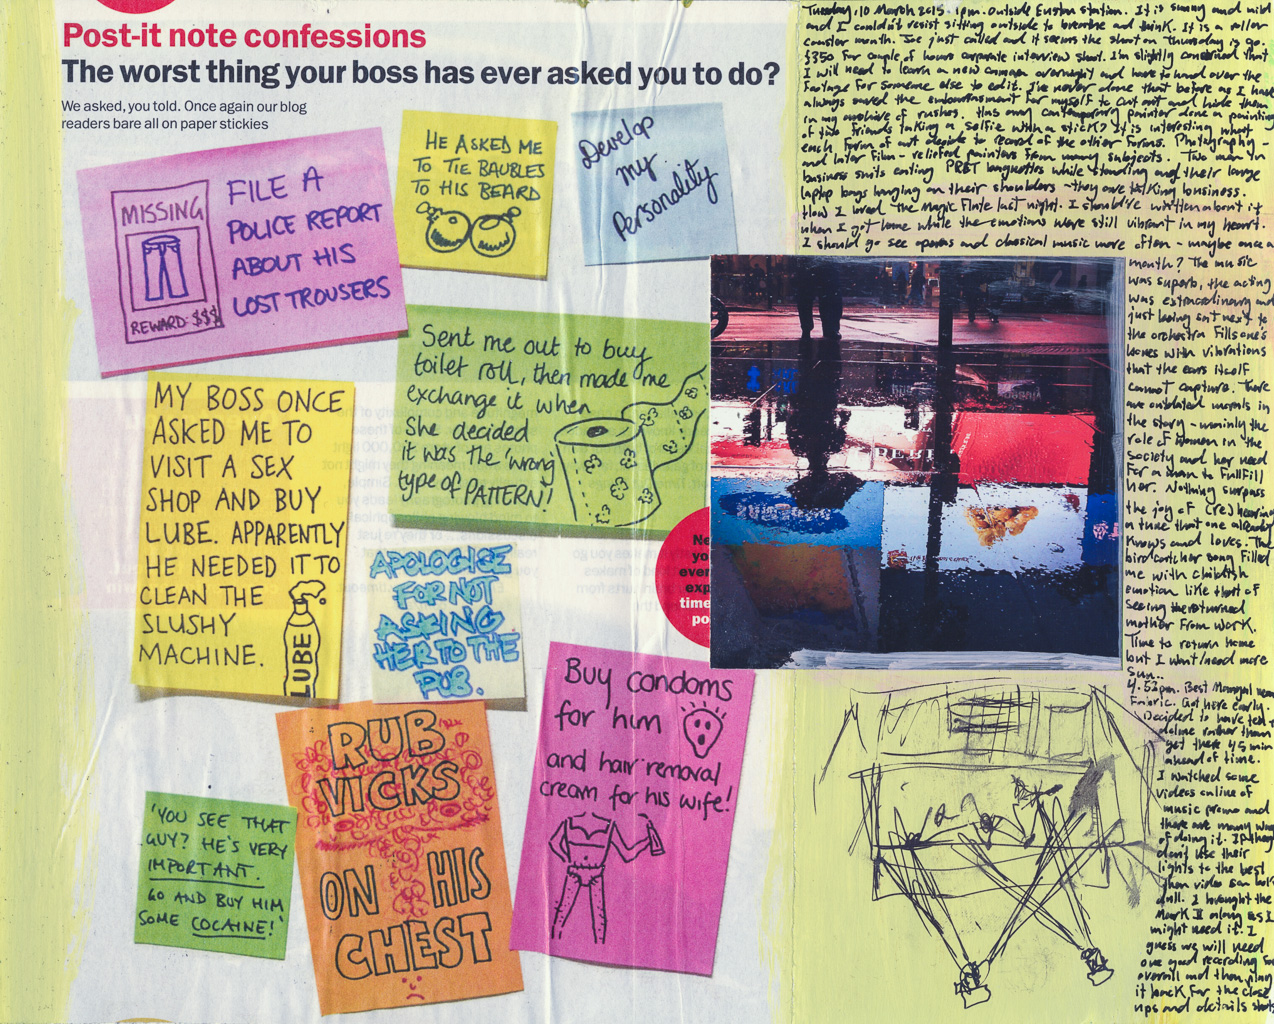 Post-it note confessions
The worst thing your boss has ever asked you to do?
We asked, you told. Once again our blog
readers bare all on paper stickies
MISSING
REWARD: $$$
FILE A
POLICE REPORT
ABOUT HIS
LOST TROUSERS
HE ASKED ME
TO TIE BAUBLES
TO HIS BEARD
Develop
my
Personality
Sent me out to buy
toilet roll, then made me
exchange it when
She decided
it was the 'wrong
type of PATTERN'!
MY BOSS ONCE
ASKED ME TO
VISIT A SEX
SHOP AND BUY
LUBE. APPARENTLY
HE NEEDED IT TO
CLEAN THE
SLUSHY
MACHINE.
LUBE
APOLOGISE
FOR NOT
ASKING
HER TO THE
PUB.
Buy condoms
for him
and hair removal
cream for his wife!
RUB
VICKS
ON HIS
CHEST
'YOU SEE THAT
GUY? HE'S VERY
IMPORTANT.
GO AND BUY HIM
SOME COCAINE!'
Ne
yo
even
exp
time
po
Tuesday, 10 March 2015. 1pm. Outside Euston station. It is sunny and mild
and I couldn't resist sitting outside to breathe and think. It is a roller
coaster month. Joe just called and it seems the shoot on Thursday is go.
£350 for couple of hours corporate interview shoot. I'm slightly concerned that
I will need to learn a new camera overnight and have to hand over the
footage for someone else to edit. I've never done that before as I have
always saved the embarrassment for myself to cut out and hide them
in my archive of rushes. Has any contemporary painter done a painting
of two friends taking a selfie with a stick? It is interesting what
each form of art decide to record of the other forms. Photography -
and later film - relieved painters from many subjects. Two men in
business suits eating PRET baguettes while standing and their large
laptop bags hanging on their shoulders - they are talking business.
How I loved the Magic Flute last night. I should've written about it
when I got home while the emotions were still vibrant in my heart.
I should go see operas and classical music more often - maybe once a
month? The music
was superb, the acting
was extraordinary and
just being sat next to
the orchestra fills one's
bones with vibrations
that the ears itself
cannot capture. There
are outdated morals in
the story - mainly the
role of women in the
society and her need
for a man to fullfill
her. Nothing surpass
the joy of (re)hearing
a tune that one already
knows and loves. The
birdcatcher song filled
me with childish
emotion like that of
seeing the returned
mother from work.
Time to return home
but I want/need more
Sun..
4.52pm. Best Mangal near
Fabric. Got here early.
Decided to have tea
alone rather than
get there 45 min
ahead of time.
I watched some
videos online of
music promo and
there are many ways
of doing it. If they
don't use their
lights to the best
then video can look
dull. I brought the
Mark II along as I
might need it. I
guess we will need
one good recording for
overall and then play
it back for the close
ups and details shots